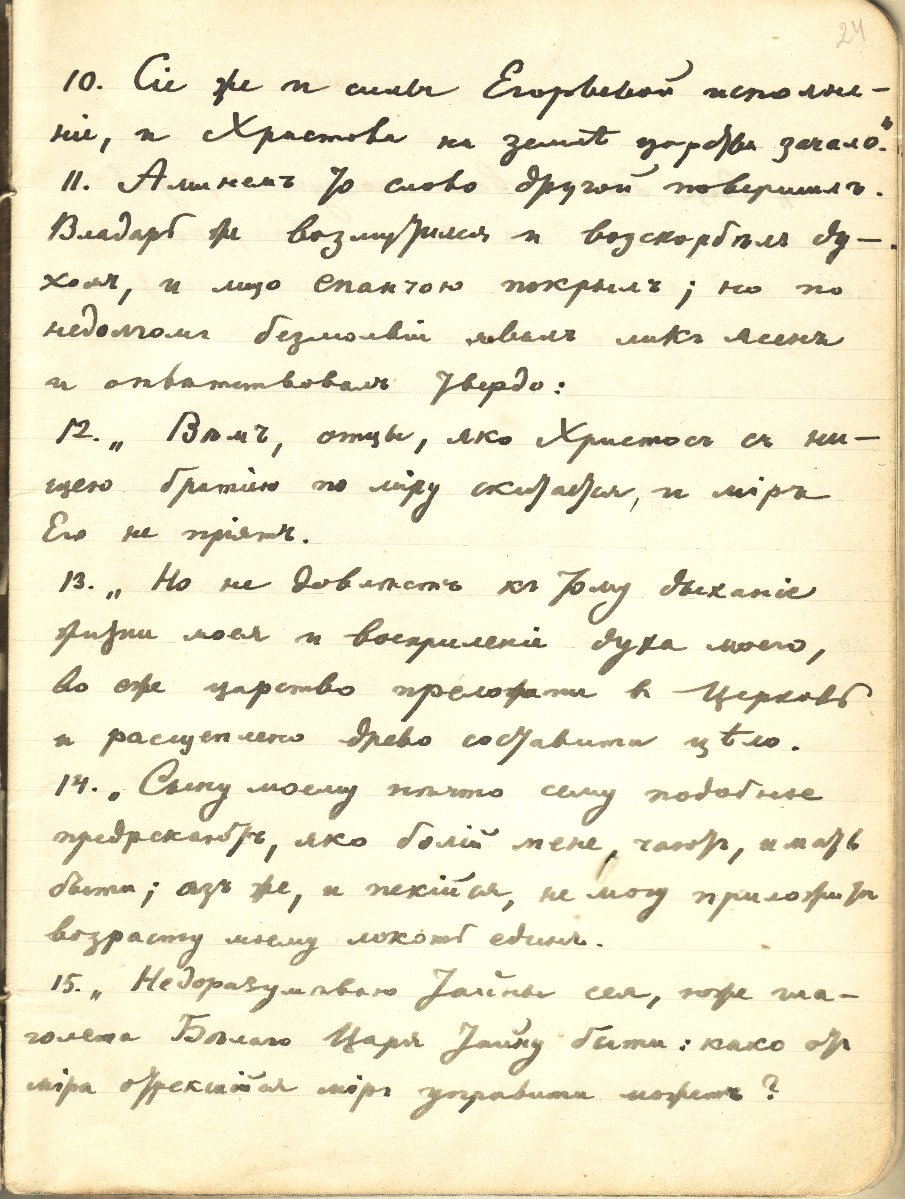 24
10. Сіе же и силы Егорьевой исполне-
ніе, и Христова на землѣ царства зачало."
11. Аминемъ то слово другой повершилъ.
Владарь же возмутился и возскорбѣлъ ду-
хомъ, и лицо епанчою покрылъ; но по
недолгомъ безмолвіи явилъ ликъ ясенъ
и отвѣтствовалъ твердо:
12. „Вѣмъ, отцы, яко Христосъ съ ни-
щею братіею по міру скитается, и міръ
Его не пріятъ.
13. „Но не довлѣетъ къ тому дыханіе
жизни моея и воскриленіе духа моего,
во еже царство преложити въ Церковь
и расщеплено древо составити цѣло.
14. „Сыну моему нѣчто сему подобное
предрекаютъ, яко болій мене, чаютъ, имать
быти; азъ же, и пекійся, не могу приложить
возрасту моему локоть единъ.
15. „Недоразумѣваю тайны сея, юже гла-
голета Бѣлаго Царя тайну быти: како отъ
міра отрекшійся міръ управити можетъ?